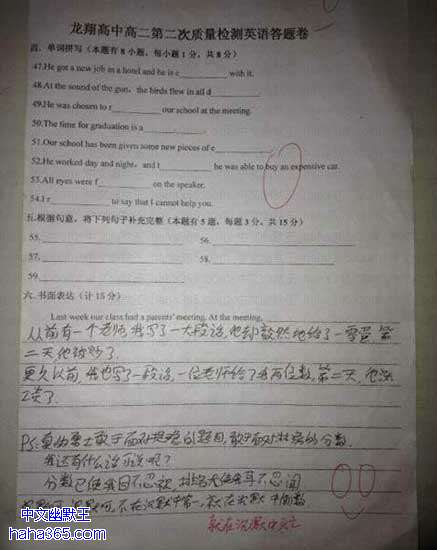 龙翔高中高二第二次质量检测英语答题卷
四、单词拼写(本题有8小题,每小题1分,共8分)
47.He got a new job in a hotel and he is c________ with it.
48.At the sound of the gun, the birds flew in all d________
49.He was chosen to r________ our school at the meeting.
50.The time for graduation is a________.
51.Our school has been given some new pieces of e________
52.He worked day and night, and t________ he was able to buy an expensive car.
53.All eyes were f________ on the speaker.
54.I r________ to say that I cannot help you.
五.根据句意,将下列句子补充完整(本题有5题,每题3分,共15分)
55. 56.
57. 58.
59.
六.书面表达(计15分)
Last week our class had a parents' meeting. At the meeting,
从前有一个老师,我写了一大段话,他却毅然地给了一零蛋,第
二天他
更久以前,我也写了一段话,一位老师给了我两位数,第二天,他
了.
PS:真的勇士敢于面对难的题目,敢于面对的分数.
我还有什么话可说呢?
分数已使我目不忍视,排名尤使我耳不忍闻
不在沉默中第一,就在沉默中倒数
就在沉默中死亡
中文幽默王
haha365.com